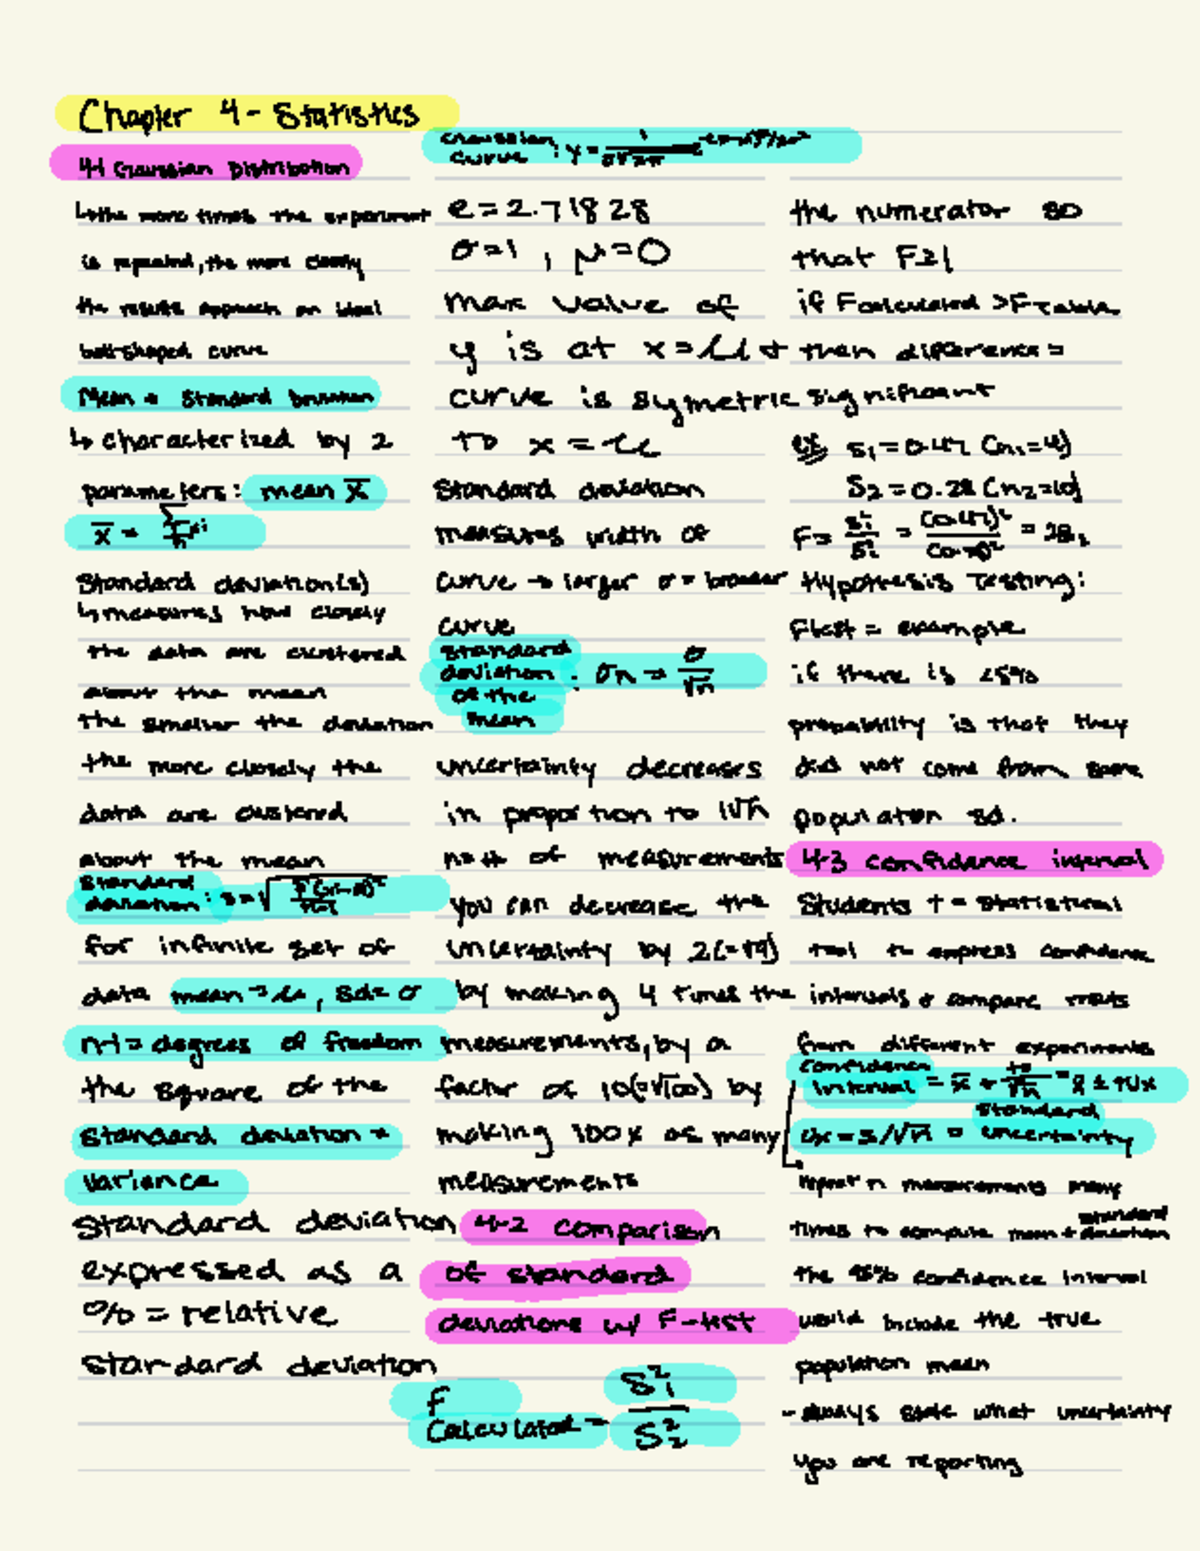 Chapter 4 - Statistics
4-1 Gaussian Distribution
↳ the more times the experiment
is repeated, the more closely
the results approach an ideal
bell-shaped curve
Mean + Standard Deviation
↳ characterized by 2
parameters: mean x̄
x̄ = Σxi/n
Standard deviation(s)
↳ measures how closely
the data are clustered
about the mean
the smaller the deviation
the more closely the
data are clustered
about the mean
Standard
deviation: s = √
for infinite set of
data mean = μ, sd = σ
n-1 = degrees of freedom
the square of the
standard deviation =
variance
standard deviation
expressed as a
% = relative
standard deviation
Gaussian
curve : y =
e = 2.71828
σ=1 , μ=0
max value of
y is at x = μ +
curve is symetric
to x = μ
Standard deviation
measures width of
curve → larger σ = broader
curve
standard
deviation : σn = σ/√n
of the
mean
uncertainty decreases
in proportion to 1/√n
n=# of measurements
you can decrease the
uncertainty by 2(=√4)
by making 4 times the
measurements, by a
factor of 10(=√100) by
making 100x as many
measurements
4-2 comparison
of standard
deviations w/ F-test
F
calculated = s₁²/s₂²
the numerator so
that F≥1
if Fcalculated > Ftable
than difference =
significant
ex s₁ = 0.47 (n₁=4)
s₂ = 0.28 (n₂=10)
F = s₁²/s₂² = (0.47)²/(0.28)² = 2.8₂
Hypothesis Testing:
Ftest = example
if there is <5%
probability is that they
did not come from same
population sd.
4-3 confidence interval
Students t = statistical
tool to express confidence
intervals + compare results
from different experiments
confidence
interval = x̄ ± ts/√n = x̄ ± tux
standard
ux = s/√n = uncertainty
repeat n measurements many
times to compute mean + standard deviation
the 95% confidence interval
would include the true
population mean
- always state what uncertainty
you are reporting